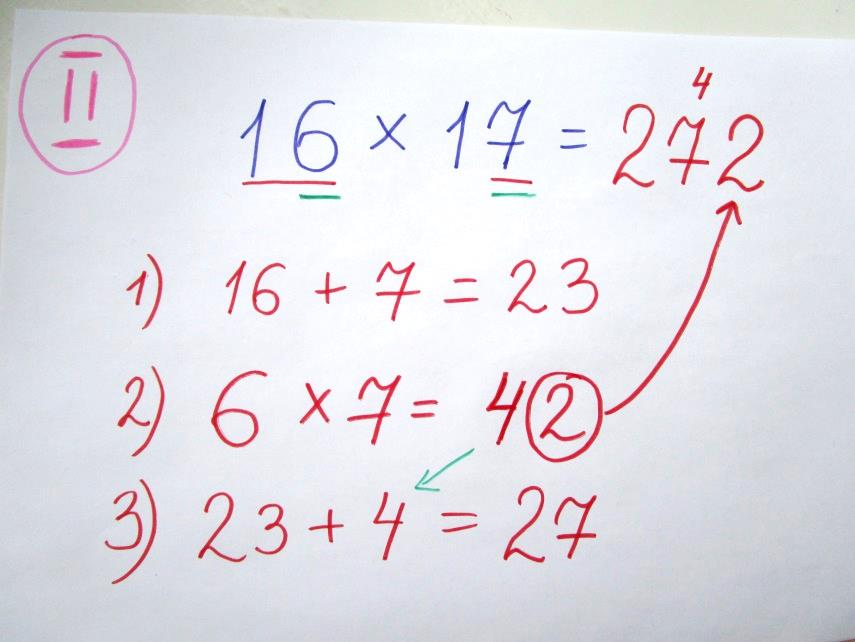 II
4
16 × 17 = 272
1) 16 + 7 = 23
2) 6 × 7 = 42
3) 23 + 4 = 27